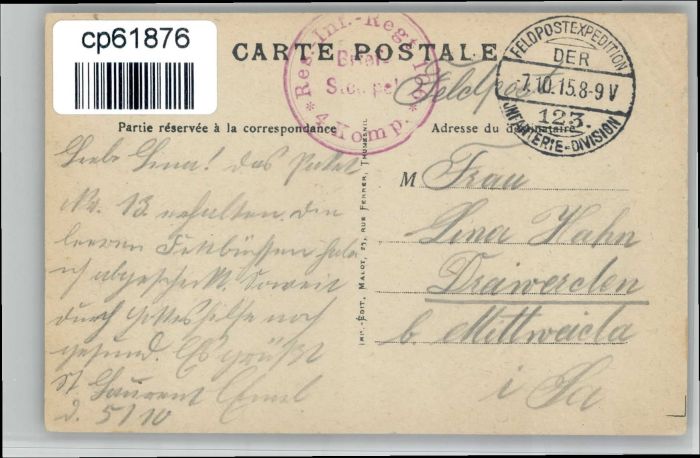 cp61876
CARTE POSTALE
Res. Inf.-Regt.
Brief
Stempel
* 4. Komp. *
FELDPOSTEXPEDITION
DER
7.10.15.8-9V
123.
INFANTERIE=DIVISION
Feldpost
Partie réservée à la correspondance
Adresse du destinataire
IMP.-ÉDIT. MALOT, 25, RUE FERRER, THUMESNIL
Liebe Lena! das Paket
Nr. 13 erhalten. die
leeren Fettbüchsen hab
ich abgeschickt. Soweit
durch Gotteshilfe noch
gesund. Es grüßt
St Laurent Emil
d. 5/10
M Frau
Lena Hahn
Draiwerden
b. Mittweida
i Sa